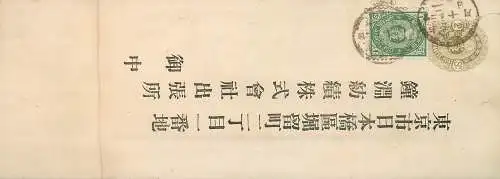 東京市日本橋區堀留町二丁目一番地
鐘淵紡績株式會社出張所
御中